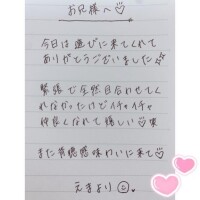 お兄様へ♡
今日は遊びに来てくれて
ありがとうございました☆
緊張で全然目合わせてく
れなかったけどイチャイチャ
仲良くなれて嬉しい♡笑
また背徳感味わいに来て♡
えまより